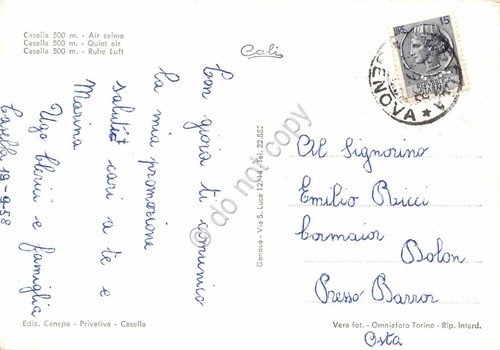 Casella 500 m. - Air calme
Casella 500 m. - Quiet air
Casella 500 m. - Ruhe Luft
Coli
Con gioia ti comunico
la mia promozione
saluti cari a te e
Marina
Ugo Clerici e famiglia
Casella 19-9-58
Ediz. Canepa - Privativa - Casella
Genova - Via S. Luca 12/14 - Tel. 22.852
LIRE 15
GENOVA
Al Signorino
Emilio Ricci
Cormaior
Dolon
Presso Barror
Osta
Vera fot. - Omniafoto Torino - Rip. interd.
do not copy